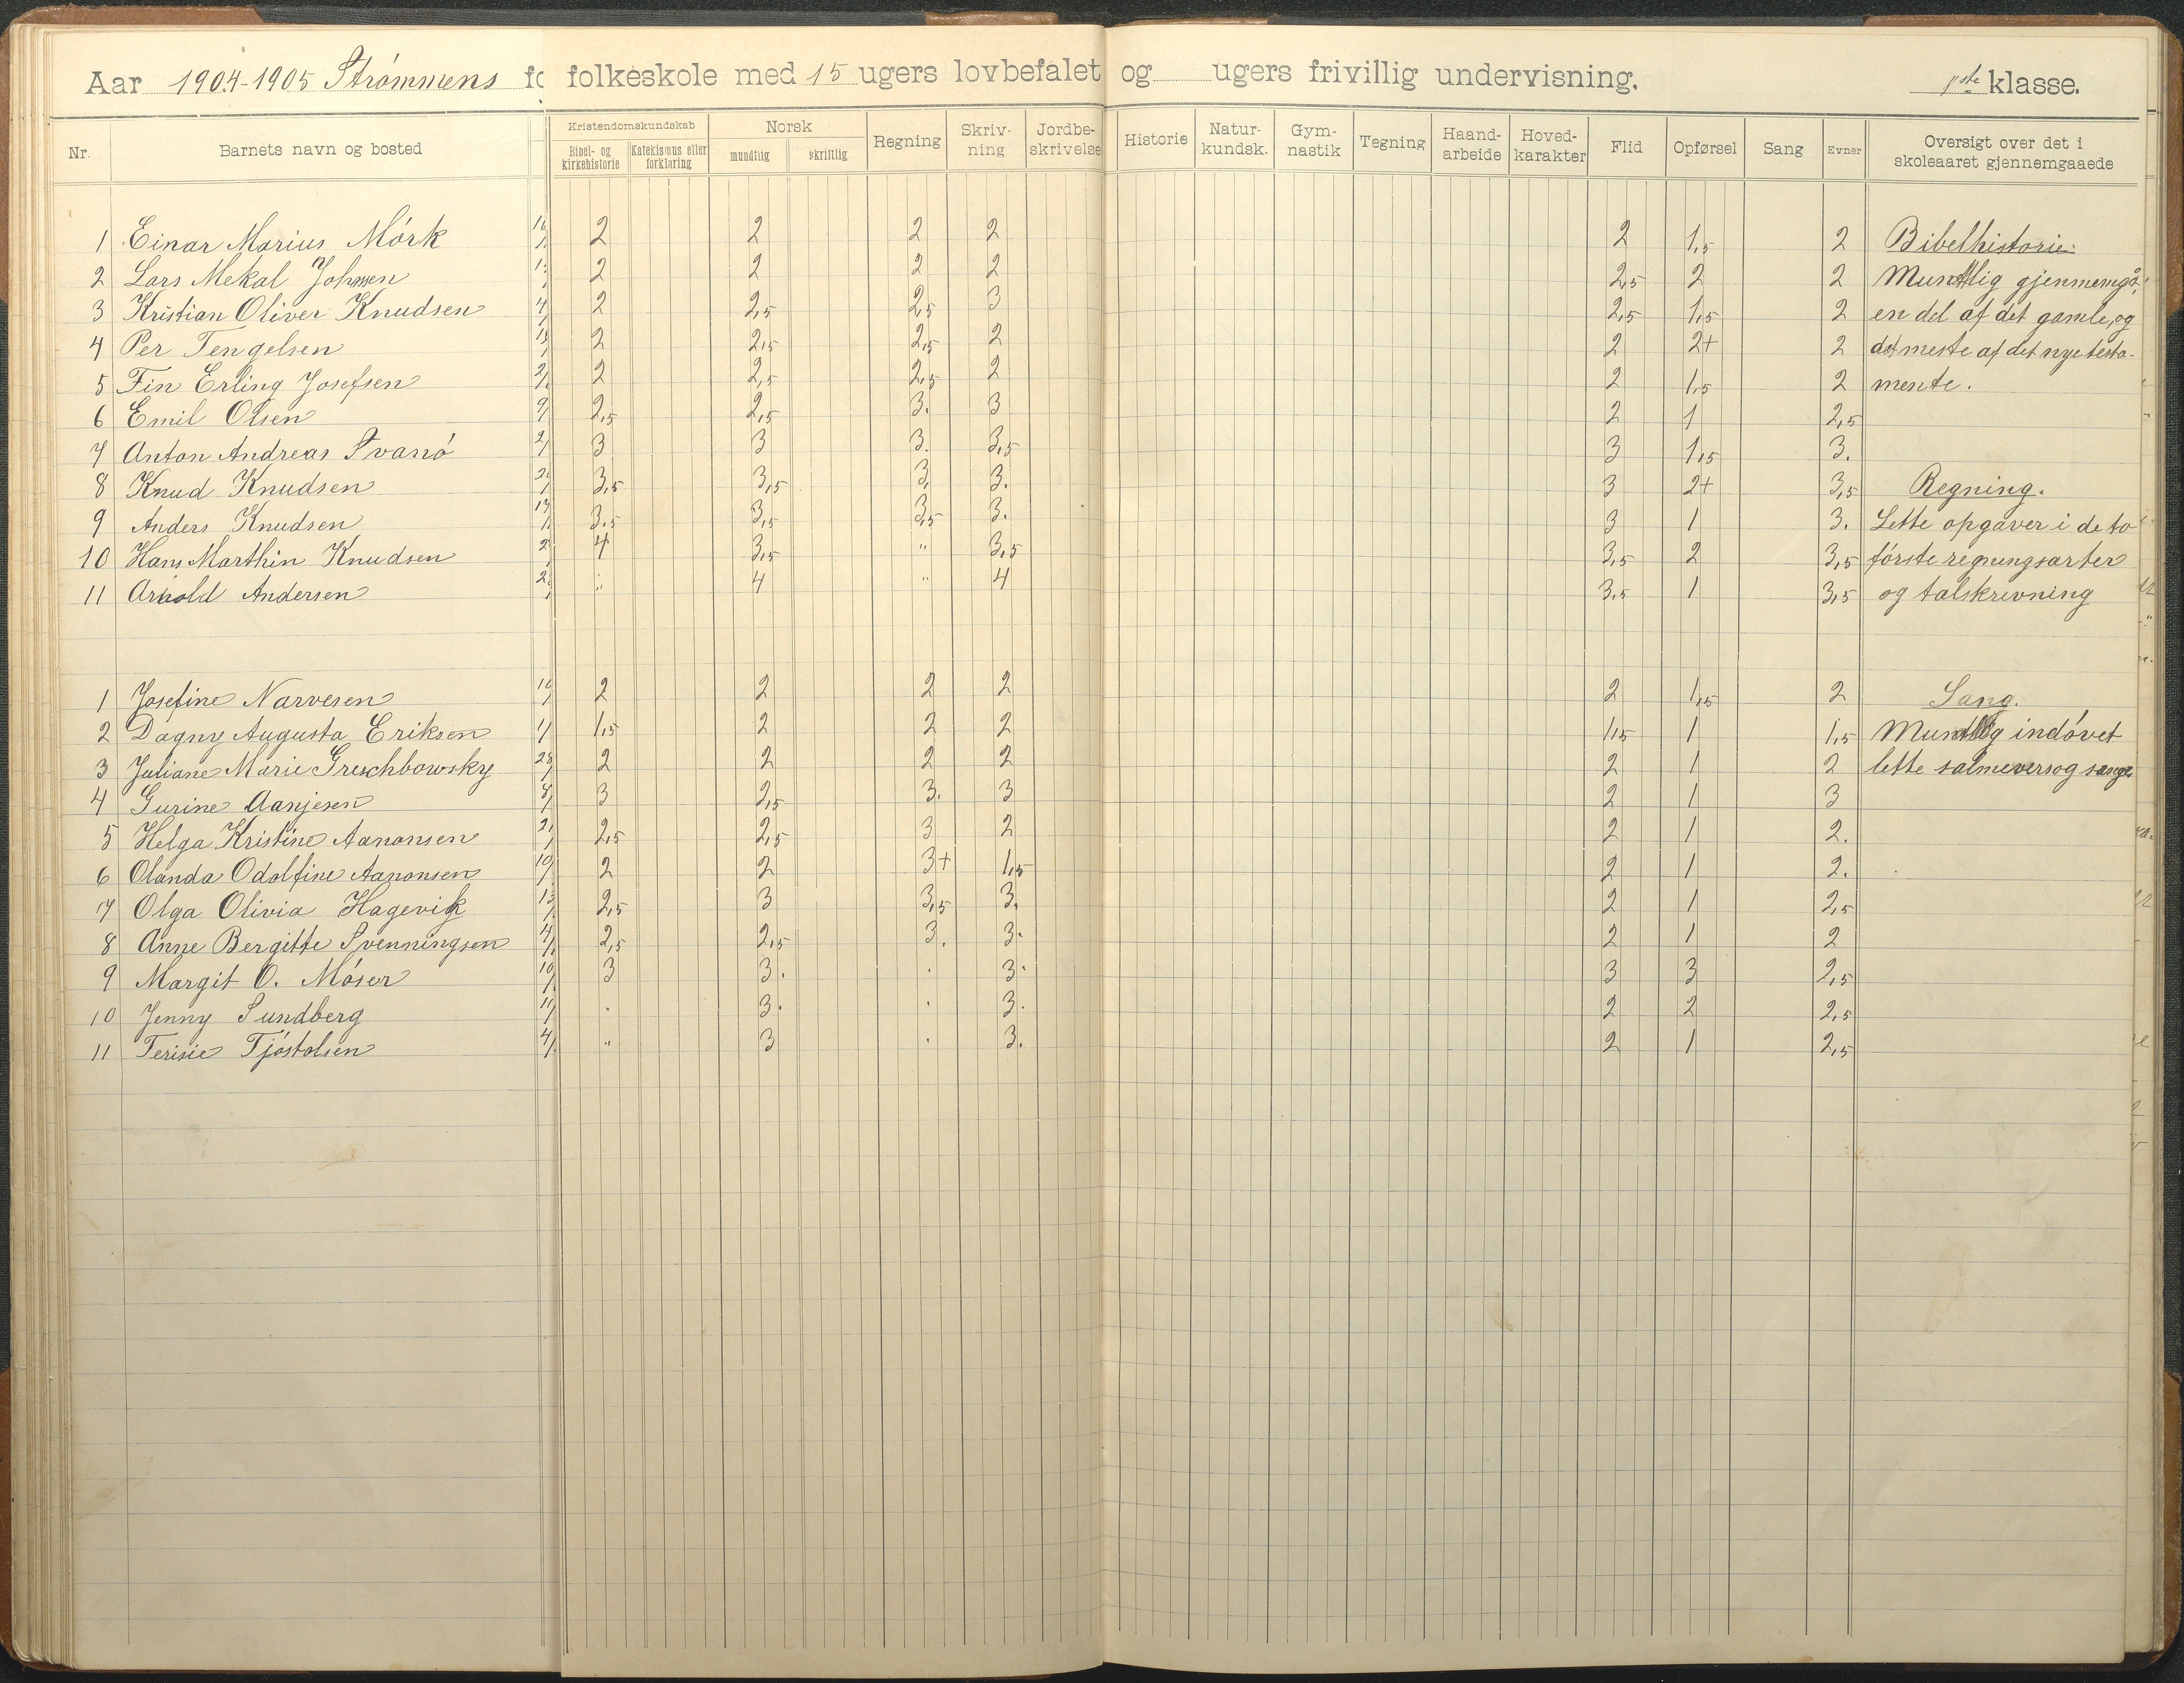 Aar 1904-1905 Strømmens fo folkeskole med 15 ugers lovbefalet og ugers frivillig undervisning. 1ste klasse.
Nr. Barnets navn og bosted Kristendomskundskab Bibel- og kirkehistorie Katekismus eller forklaring Norsk mundtlig skriftlig Regning Skriv- ning Jordbe- skrivelse Historie Natur- kundsk. Gym- nastik Tegning Haand- arbeide Hoved- karakter Flid Opførsel Sang Evner Oversigt over det i skoleaaret gjennemgaaede
1 Einar Marius Mörk 2 2 2 2 2 1,5 2 Bibelhistorie:
2 Lars Mekal Johnsen 2 2 2 2 2,5 2 2 Mundtlig gjennemgå
3 Kristian Oliver Knudsen 2 2,5 2,5 3 2,5 1,5 2 en del af det gamle, og
4 Per Tengelsen 2 2,5 2,5 2 2 2+ 2 det meste af det nye testa-
5 Fin Erling Josefsen 2 2,5 2,5 2 2 1,5 2 mente.
6 Emil Olsen 2,5 2,5 3. 3 2 1 2,5
7 Anton Andreas Svanö 3 3 3. 3,5 3 1,5 3.
8 Knud Knudsen 3,5 3,5 3, 3. 3 2+ 3,5 Regning.
9 Anders Knudsen 3.5 3,5 3,5 3. 3 1 3. Lette opgaver i de to
10 Hans Marthin Knudsen 4 3,5 " 3,5 3,5 2 3,5 förste regningsarter
11 Arnold Andersen " 4 " 4 3,5 1 3,5 og talskrivning
1 Josefine Narvesen 2 2 2 2 2 1,5 2 Sang.
2 Dagny Augusta Eriksen 1,5 2 2 2 1,5 1 1,5 Mundtlig indövet
3 Juliane Marie Greschbowsky 2 2 2 2 2 1 2 lette salmevers og sange
4 Gurine Aanjesen 3 2,5 3. 3 2 1 3
5 Helga Kristine Aanonsen 2,5 2,5 3 2 2 1 2.
6 Olanda Odolfine Aanonsen 2 2 3+ 1,5 2 1 2.
7 Olga Olivia Hagevik 2,5 3 3,5 3. 2 1 2,5
8 Anne Bergitte Svenningsen 2,5 2,5 3. 3. 2 1 2
9 Margit O. Möser 3 3. . 3. 3 3 2,5
10 Jenny Sundberg . 3. . 3. 2 2 2,5
11 Terisie Tjöstolsen " 3 . 3. 2 1 2,5